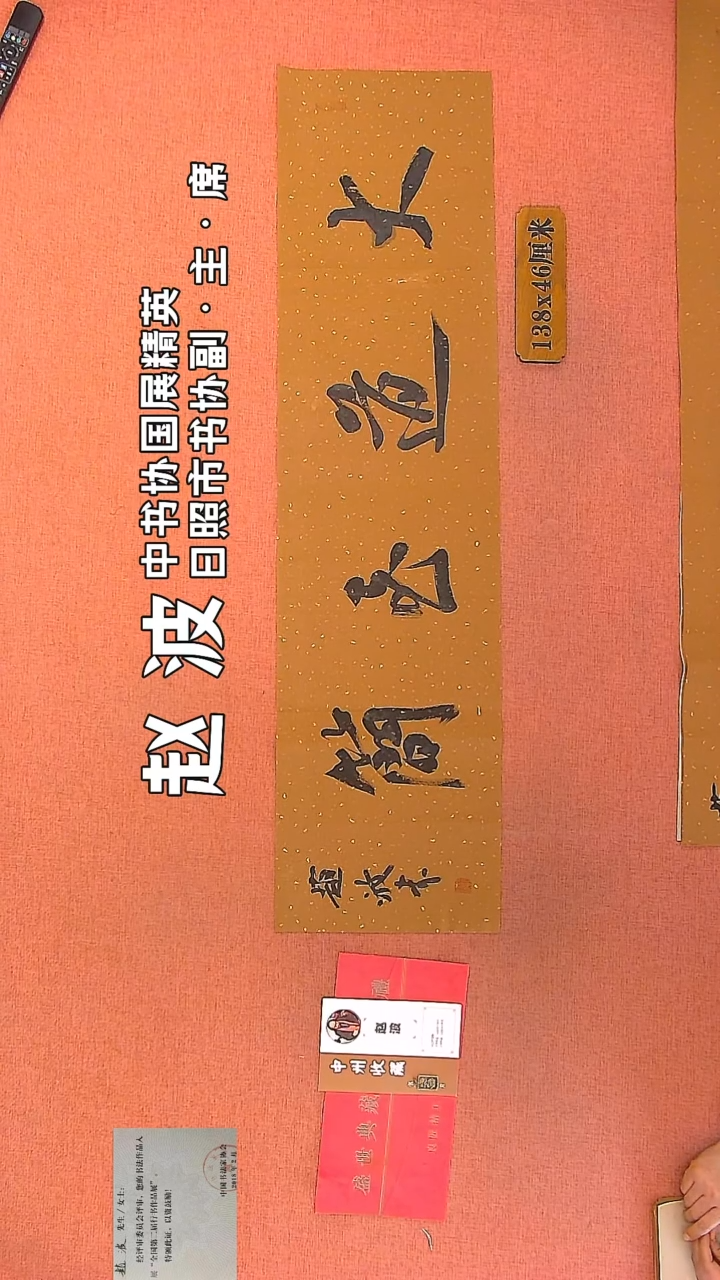 赵 波
中书协国展精英
日照市书协副·主·席
大道至簡
趙波书
138x46厘米
赵波
中州收藏
盛世典藏
赵 波 先生/女士：
经评审委员会评审，您的书法作品入
展“全国第二届行书作品展”。
特颁此证，以资鼓励！
中国书法家协会